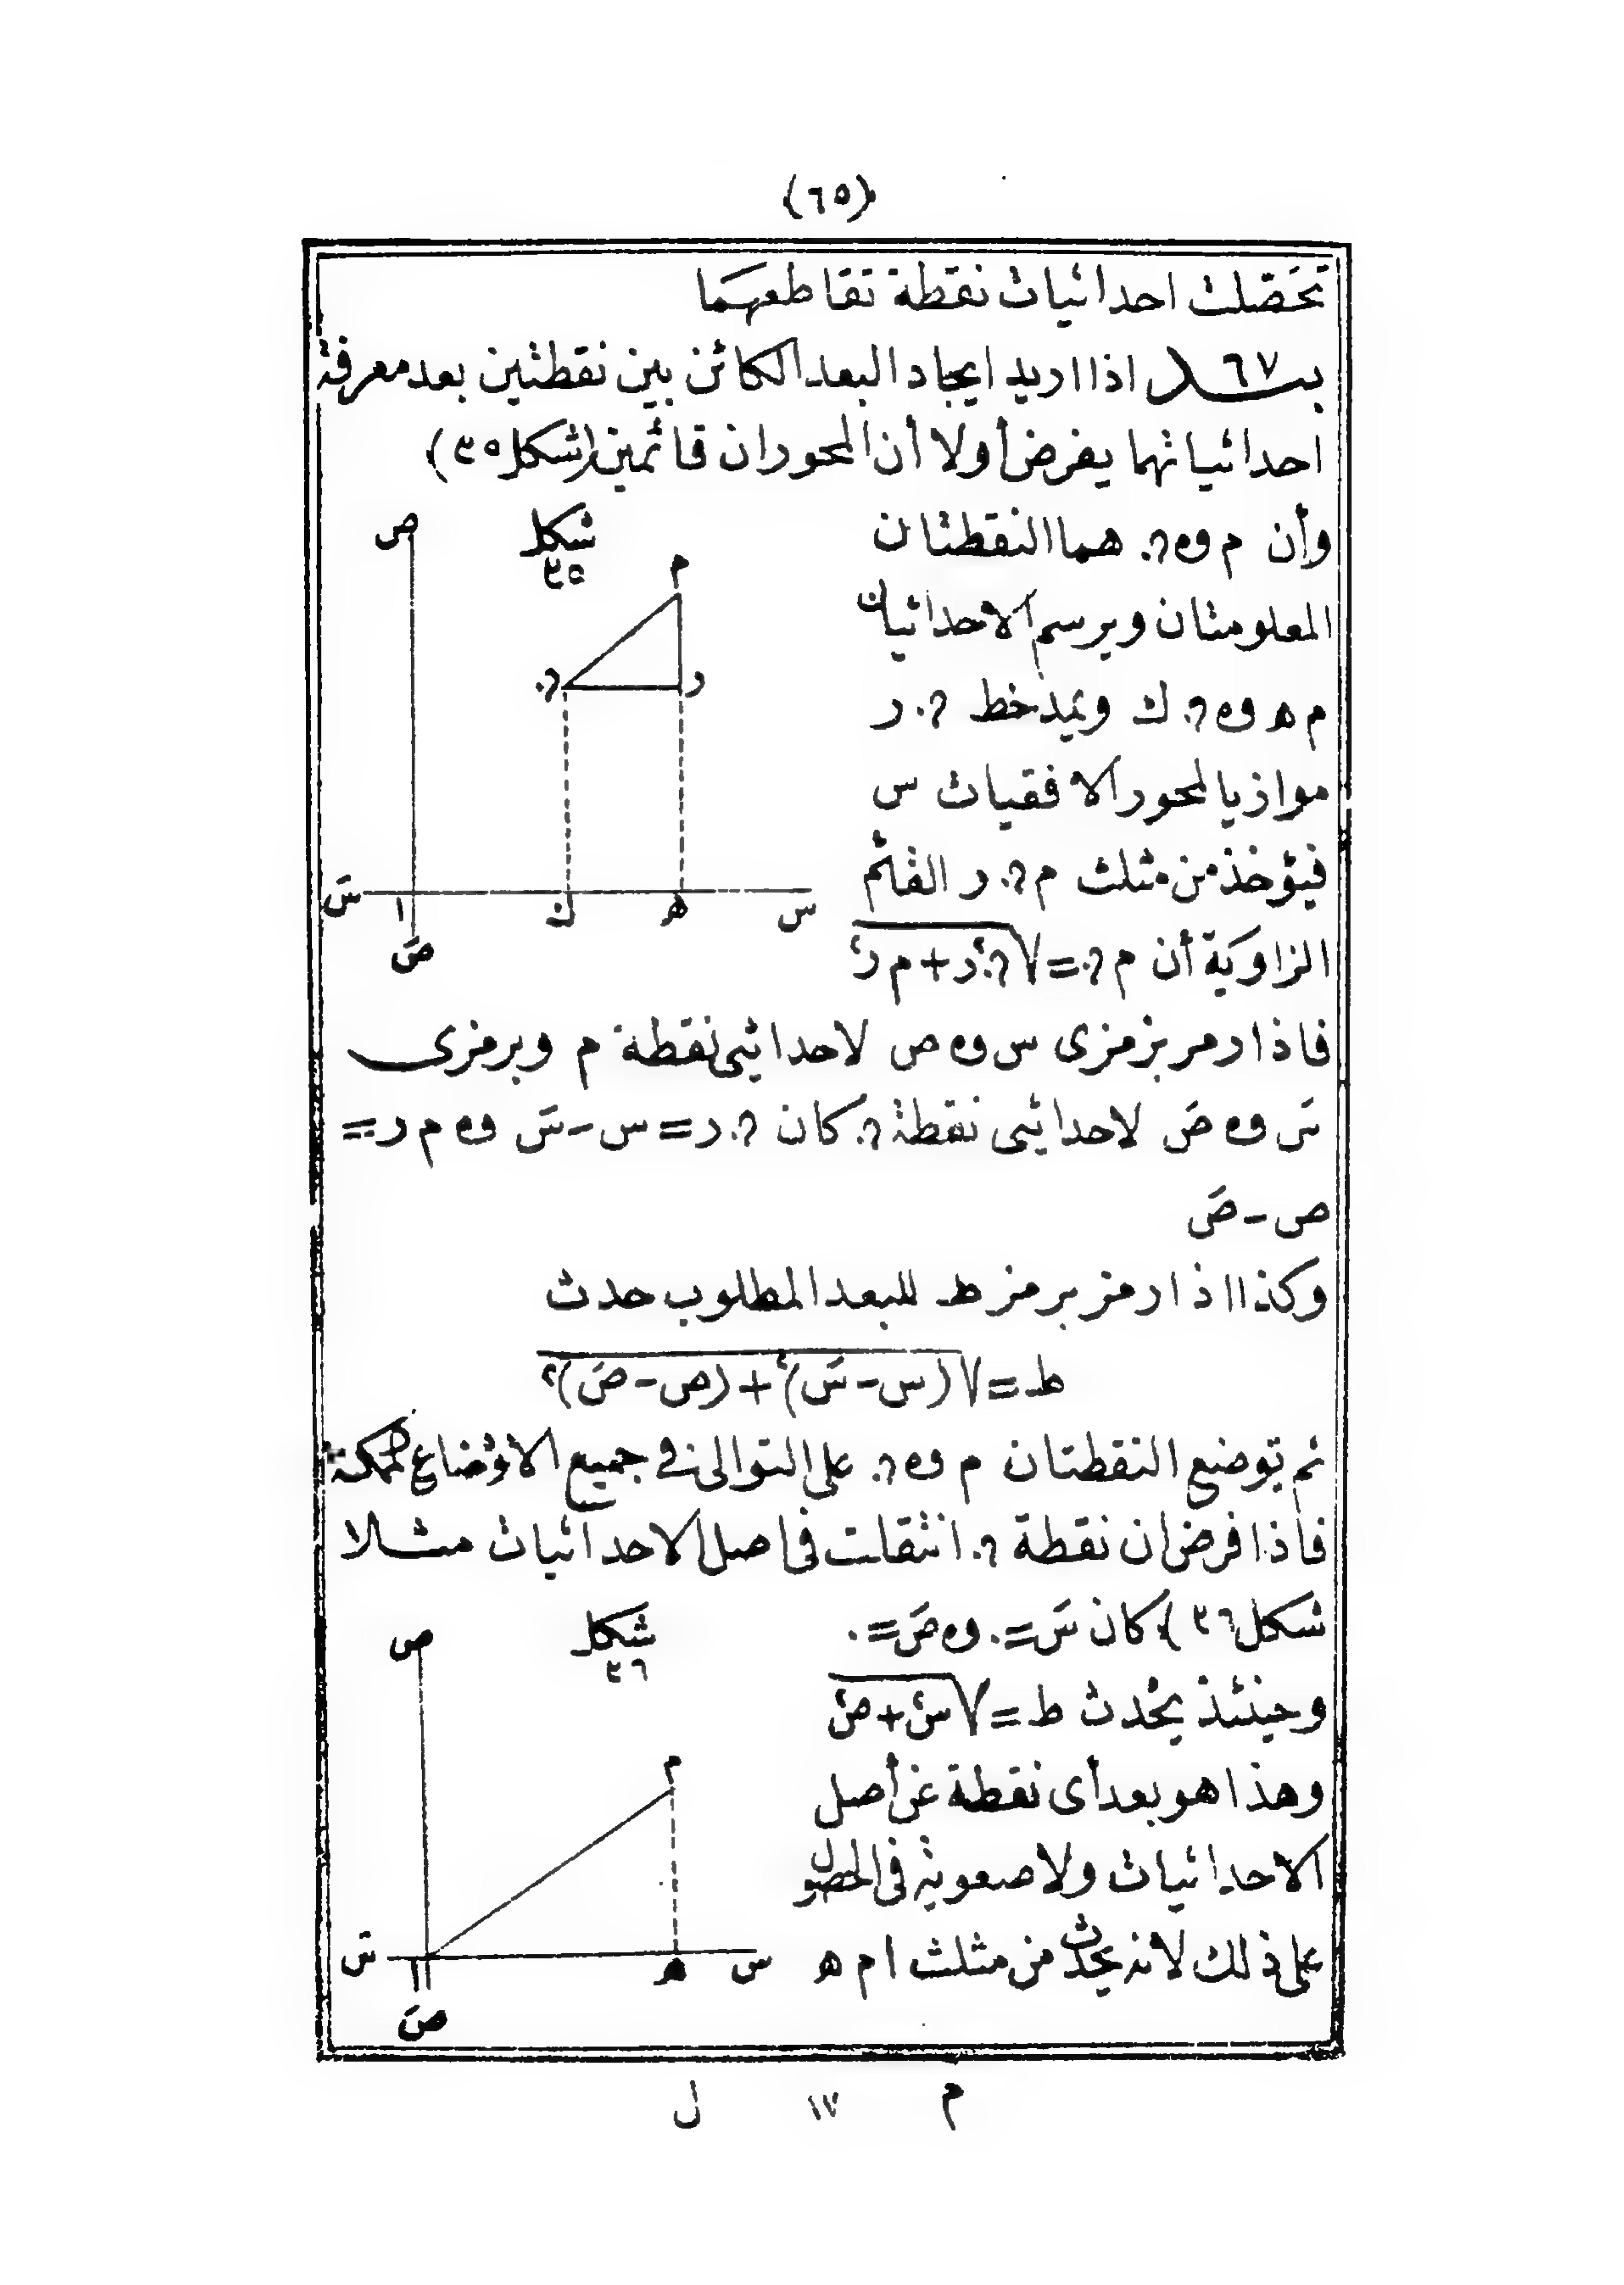 (٦٥)
تحَصّلت احداثيات نقطة تقاطعهَما
بند ٦٧ اذا اريد ايجاد البعد الكائن بين نقطتين بعد معرفة
احداثياتهما يفرض أولا أن المحوران قائمين (شكل ٣٥)
وأن م و ن هما النقطتان
المعلومتان ويرسم الاحداثيان
م ه و ن ك ويمد خط ن ر
موازيا لمحور الافقيات س
فيؤخذ من مثلث م ن ر القائم
الزاوية أن م ن = √ن ر٢ + م ر٢
فاذا رمز برمزى س و ص لاحداثيى نقطة م وبرمزى
سَ و صَ لاحداثيى نقطة ن كان ن ر = س - سَ و م ر =
ص - صَ
وكذا اذا رمز برمز ط للبعد المطلوب حدث
ط = √(س - سَ)٢ + (ص - صَ)٢
ثم توضع النقطتان م و ن على التوالى فى جميع الاوضاع الممكنة
فاذا فرض ان نقطة ن انتقلت فى اصل الاحداثيات مثلا
شكل ٣٦) كان سَ = ٠ و صَ = ٠
وحينئذ يحْدث ط = √س٢ + ص٢
وهذا هو بعد أى نقطة عن أصل
الاحداثيات ولا صعوبة فى الحصول
على ذلك لانه يحدث من مثلث ا م ه
شكل
٣٥
ص
م
ن
ر
سَ
ا
ك
ه
س
صَ
شكل
٣٦
ص
م
سَ
ا
ه
س
صَ
م ١٧ ل